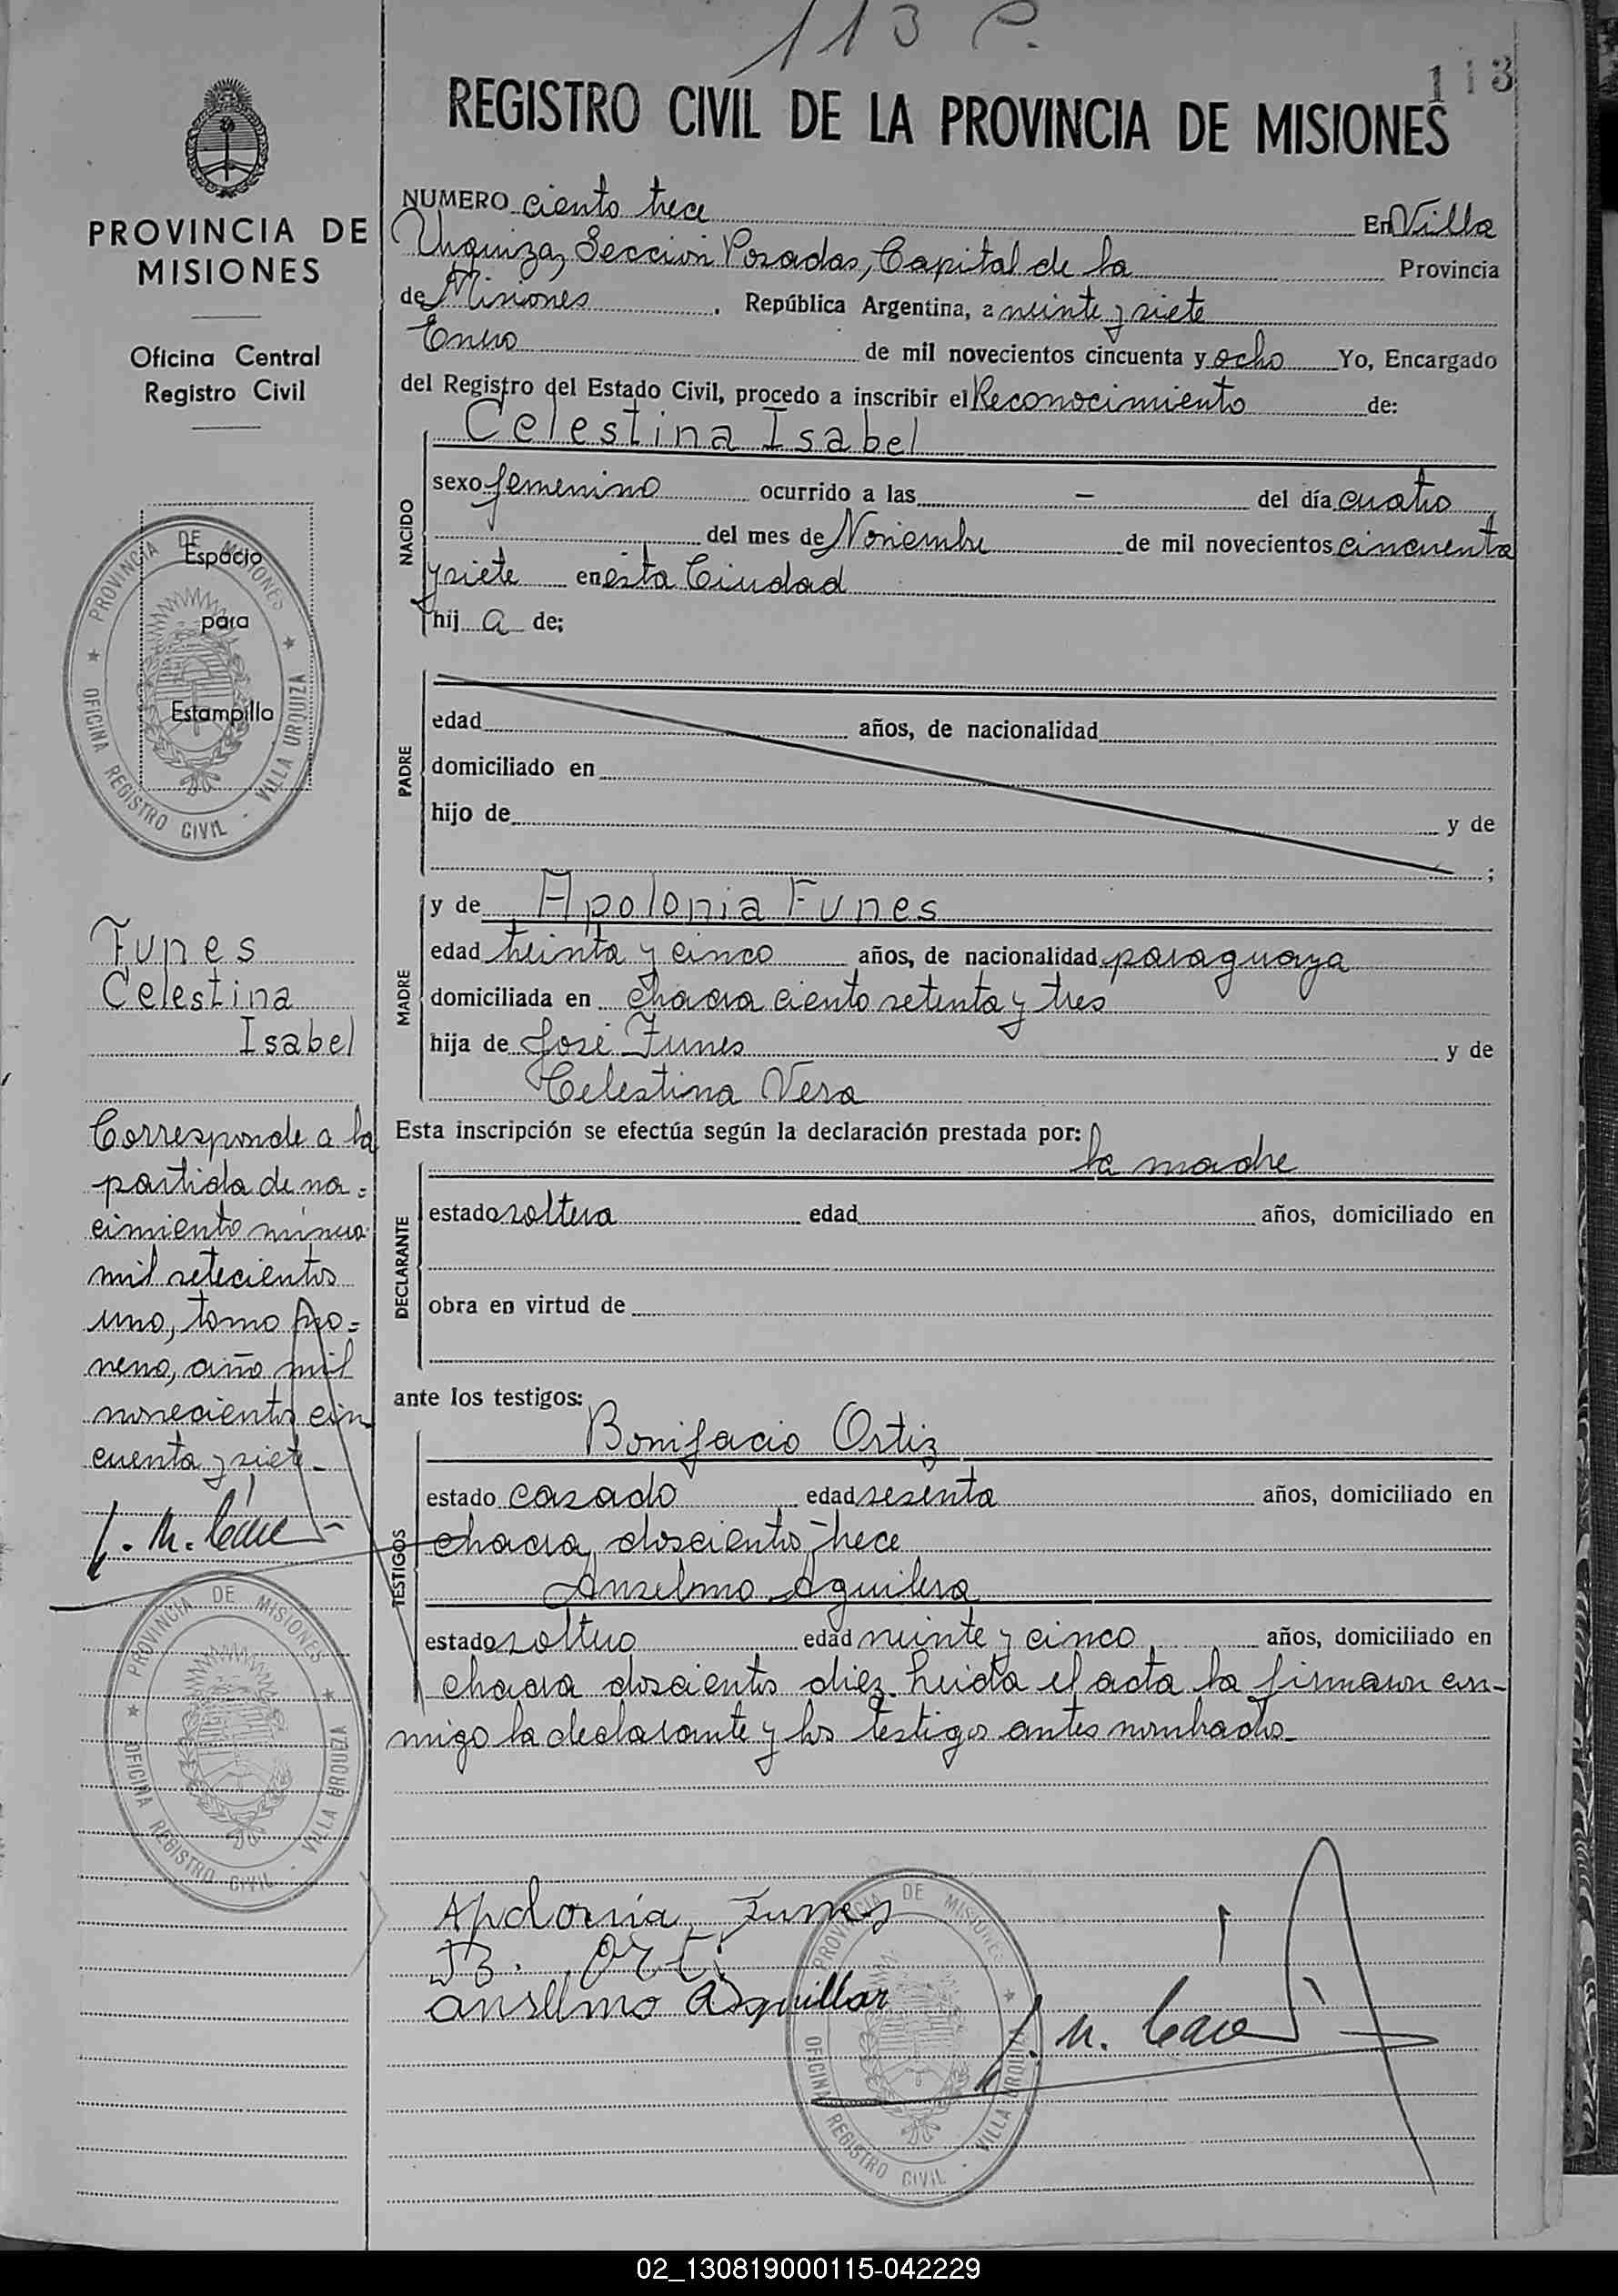 113 P.
113
REGISTRO CIVIL DE LA PROVINCIA DE MISIONES
PROVINCIA DE
MISIONES
Oficina Central
Registro Civil
Espacio
para
Estampilla
PROVINCIA DE MISIONES
OFICINA REGISTRO CIVIL - VILLA URQUIZA
Funes
Celestina
Isabel
Corresponde a la
partida de na=
cimiento número
mil setecientos
uno, tomo no=
veno, año mil
novecientos cin
cuenta y siete
PROVINCIA DE MISIONES
OFICINA REGISTRO CIVIL - VILLA URQUIZA
NUMERO ciento trece En Villa
Urquiza, Sección Posadas, Capital de la Provincia
de Misiones, República Argentina, a veinte y siete
Enero de mil novecientos cincuenta y ocho Yo, Encargado
del Registro del Estado Civil, procedo a inscribir el Reconocimiento de:
NACIDO
Celestina Isabel
sexo femenino ocurrido a las - del día cuatro
del mes de Noviembre de mil novecientos cincuenta
y siete en esta Ciudad
hij a de;
PADRE
edad años, de nacionalidad
domiciliado en
hijo de y de
;
MADRE
y de Apolonia Funes
edad treinta y cinco años, de nacionalidad paraguaya
domiciliada en chacra ciento setenta y tres
hija de José Funes y de
Celestina Vera
Esta inscripción se efectúa según la declaración prestada por:
la madre
DECLARANTE
estado soltera edad años, domiciliado en
obra en virtud de
ante los testigos:
TESTIGOS
Bonifacio Ortiz
estado casado edad sesenta años, domiciliado en
chacra doscientos trece
Anselmo Aguilera
estado soltero edad veinte y cinco, años, domiciliado en
chacra doscientos diez. Leída el acta la firmaron con-
migo la declarante y los testigos antes nombrados
Apolonia Funes
B. Orti
anselmo Aguillar
PROVINCIA DE MISIONES
OFICINA REGISTRO CIVIL - VILLA URQUIZA
02_130819000115-042229